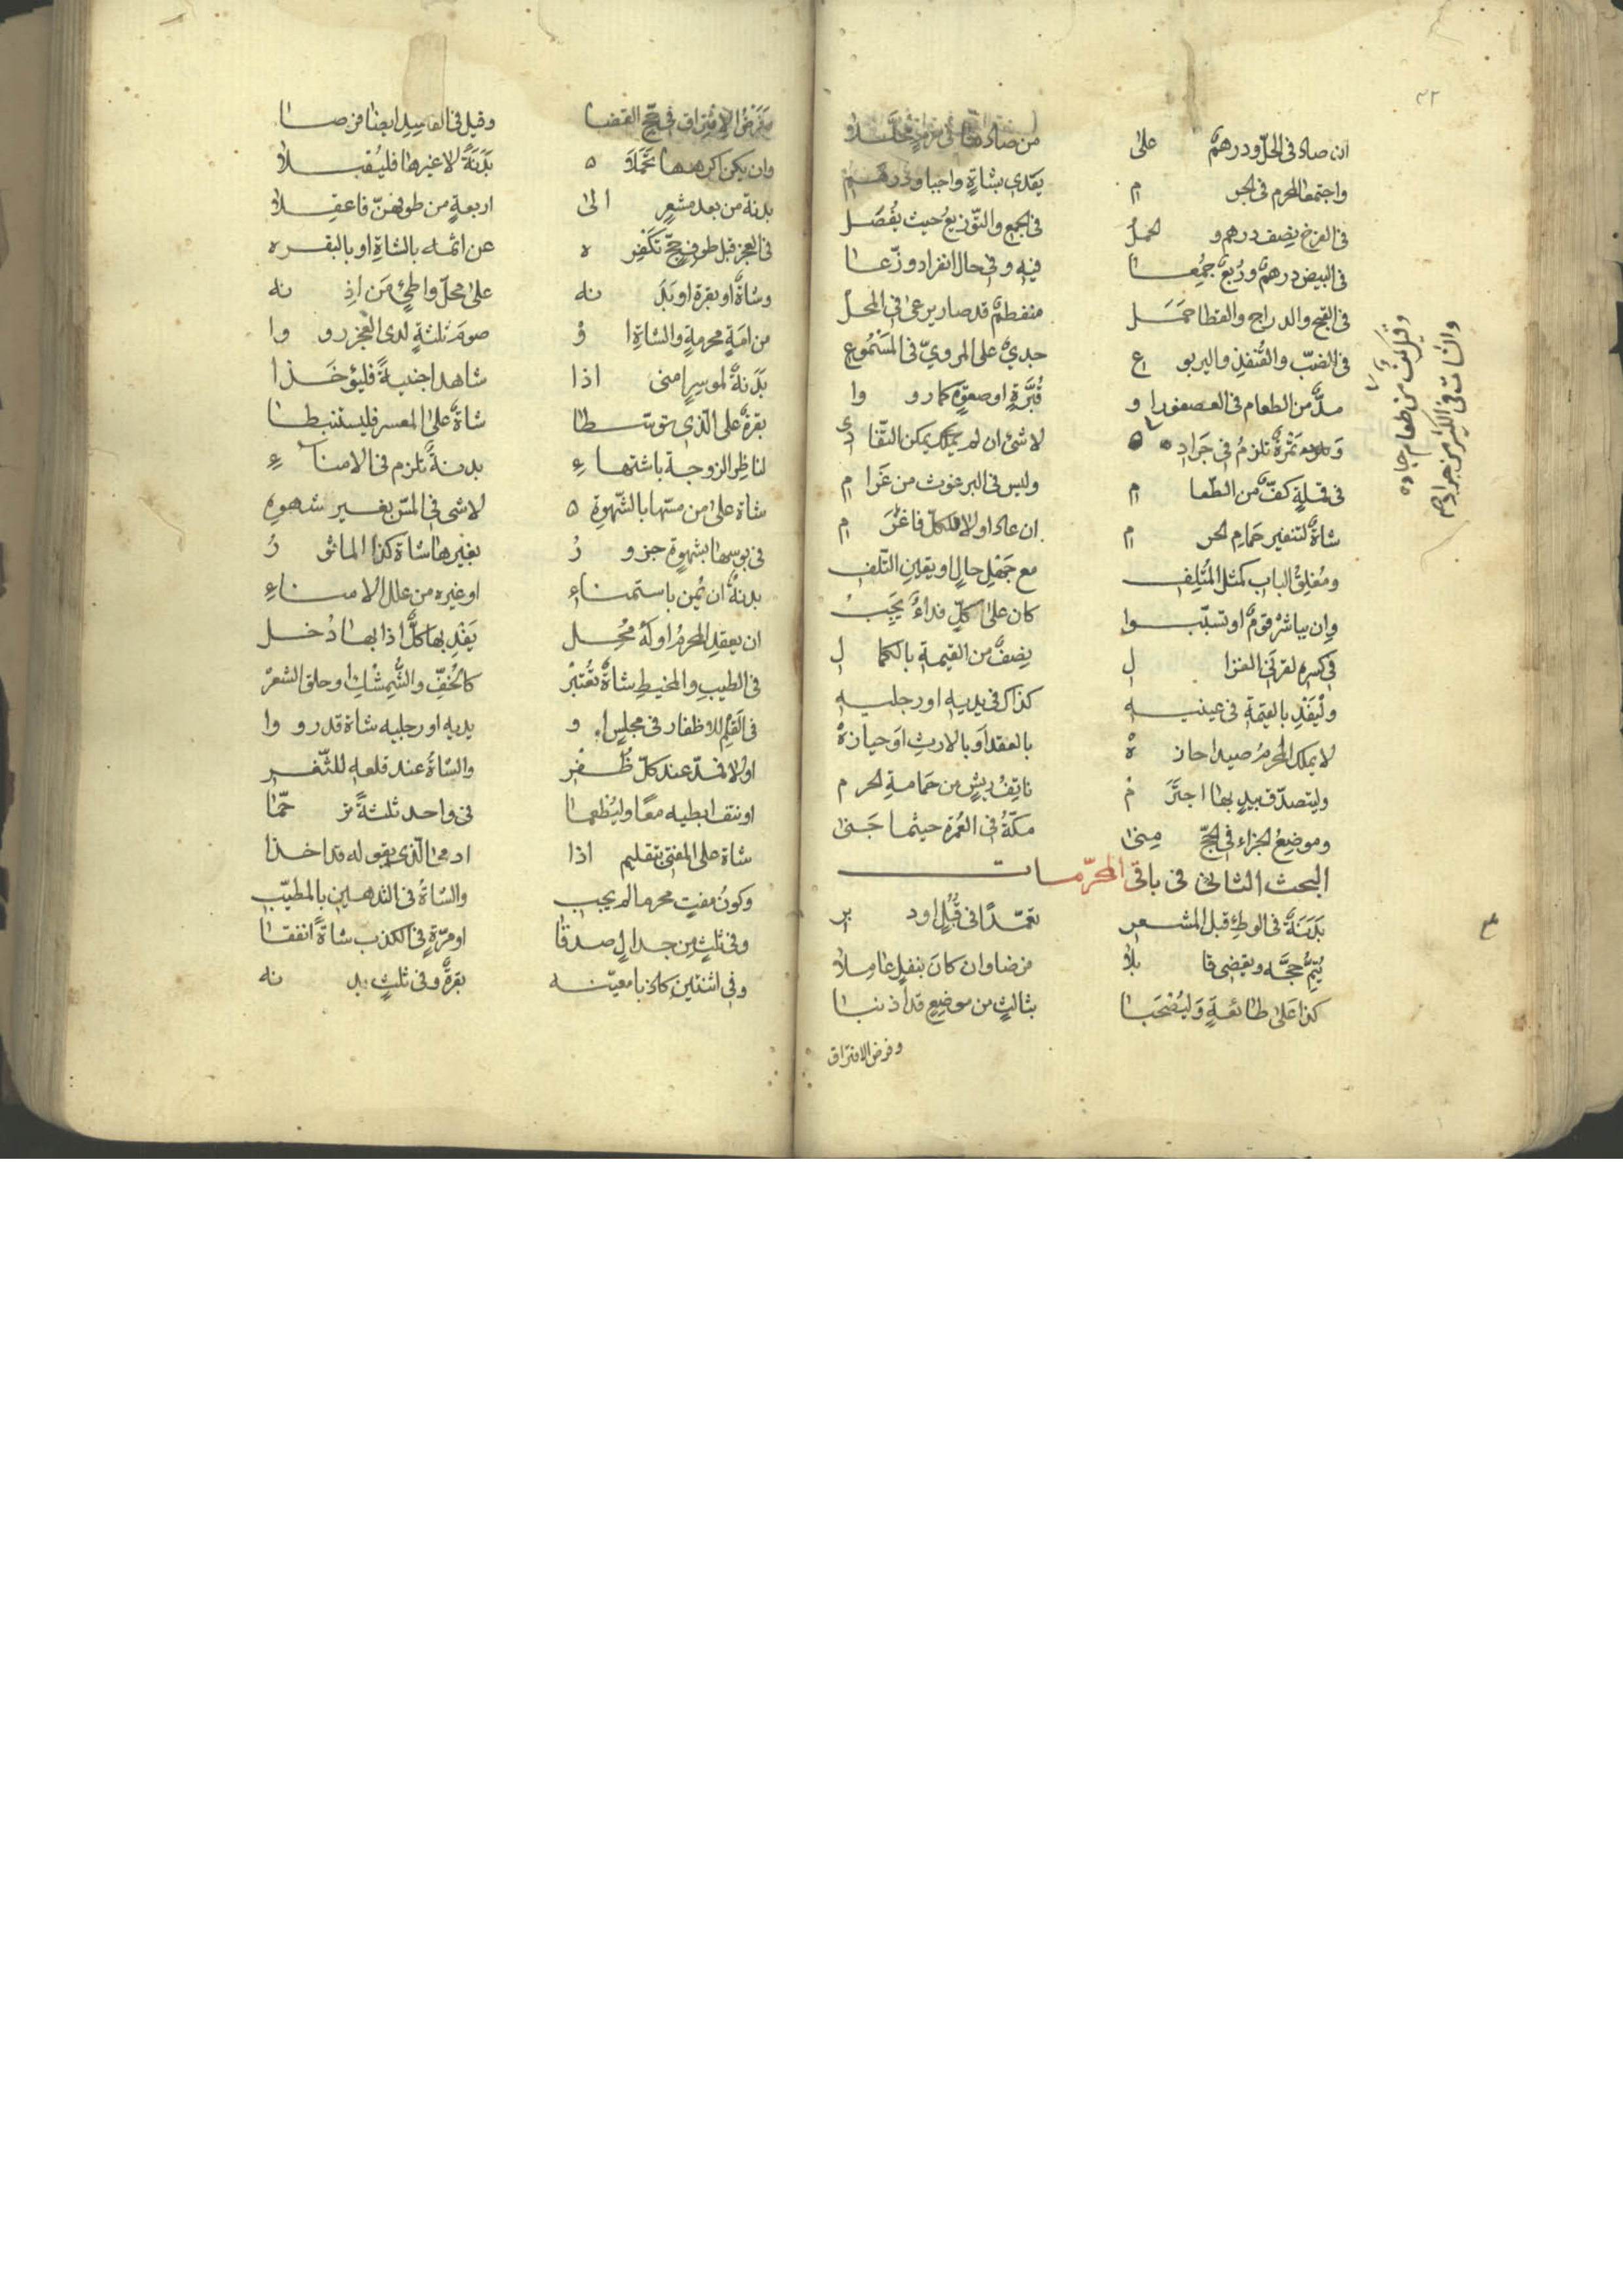 ان صاد فى الحلّ ودرهمٌ على من صادها فى
واجتمعا لمحرم فى الحرم يفدى بشاةٍ واجبا ودرهم
فى الفرخ نصف درهم و الحمل فى الجمع والتّوزيع حيث يفصل
فى البيض درهمٌ وربعٌ جمعا فيه وفى حال انفراد وزّعا
فى القبج والدراج والقطا حمل منفطمٌ قد صار يرعى فى المحل
فى الضبّ والقُنفذِ واليربوع جدىٌ على المروىّ فى المسموع
مدٌّ من الطعام فى العصفور او قُبّرةٍ او صعوةٍ كما رووا
تمرةٌ تلزمُ فى جرادة لا شئ ان لم يمكن
فى قملةٍ كفٌّ من الطّعام وليس فى البرغوث من غرام
شاةٌ لتنفير حمام الحرم ان عاد اولا فلكلّ فاغرم
ومُغلِقُ الباب كمثل المُتلِف مع جهل حالٍ او يقين التّلف
وان يباشر قومٌ او تسبّبوا كان على كلٍّ فداءٌ يجب
فى كسره لقرنى الغزال نصفٌ من القيمة بالكمال
وليفد بالقيمة فى عينيه كذاك فى يديه او رجليه
لا يملك المحرمُ صيدا حازه بالعقد او بالارث او حيازة
وليتصدّق بيدٍ بها اجترم ناتِفُ ريشٍ من حمامة الحرم
وموضعُ الجزاء فى الحجّ مِنى مكّةُ فى العمرة حيثما جنى
البحث الثانى فى باقى المحرّمات
بدنةٌ فى الوطئ قبل المشعر تعمّدًا فى قُبُلٍ او دبر
يُتمّ حجّه ويقضى قابلا فرضا وان كان بنفلٍ عاملا
كذا على طائعةٍ وليُصحبا بثالثٍ من موضعٍ قد اذنبا
وفرض الافتراق
وقيل كف من طعام جاده
والشاة فى الكثير من جرادهم
وفرضُ الافتراق فى حجّ القضا وقيل فى الفاسد ايضا فرضا
وان يكن اكرهها تحمّله بدنةً لا غيرها فليُقبلا
بدنة من بعد مشعرٍ الى اربعةٍ من طوفهنّ فاعقلا
فى العجز قبل طوف حجّ تكفره عن اثمه بالشاةِ او بالبقره
وشاةٌ او بقرة او بدنه على محلّ واطئٍ من اذنه
من امةٍ محرمةٍ والشاةِ او صومَ ثلثةٍ لدى العجز رووا
بدنةٌ لموسرٍ امنى اذا شاهد اجنبيةً فليؤخذا
بقرةٌ على الّذى توسّطا شاةٌ على المعسر فليستنبطا
لناظر الزوجة باشتهاءِ بدنةٌ تلزم فى الامناءِ
شاة على من مسّها بالشّهوة لا شى فى المسّ بغير شهوه
فى بوسها بشهوةٍ جزورُ بغيرها شاة كذا الماثورُ
بدنةٌ ان يُمن باستمناءِ او غيره من علل الامناءِ
ان يعقد المحرمُ او له مُحل يفدِ بها كلٌّ اذا بها دُخل
فى الطيبِ والمخيطِ شاةٌ تُعتبر كالخُفّ والشّمشك او حلق الشعر
فى القلم للاظفار فى مجلسٍ او يديه او رجليه شاة قد رووا
اولا فمدّ عند كلّ ظُفر والشاةُ عند قلعه للثّغر
او نتف ابطيه معًا وليُطعما فى واحد ثلثةً
شاة على المفتى بتقليم اذا ادمى الّذى بقوله قد اخذا
وكونُ مفتٍ محرما لم يجب والشاةُ فى التدهين بالمطيّب
وفى ثلثٍ من جدالٍ صدقا او مرّةٍ فى الكذب شاةً انفقا
وفى اثنتين كاذبا معيّنه بقرةٌ وفى ثلثٍ بدنه